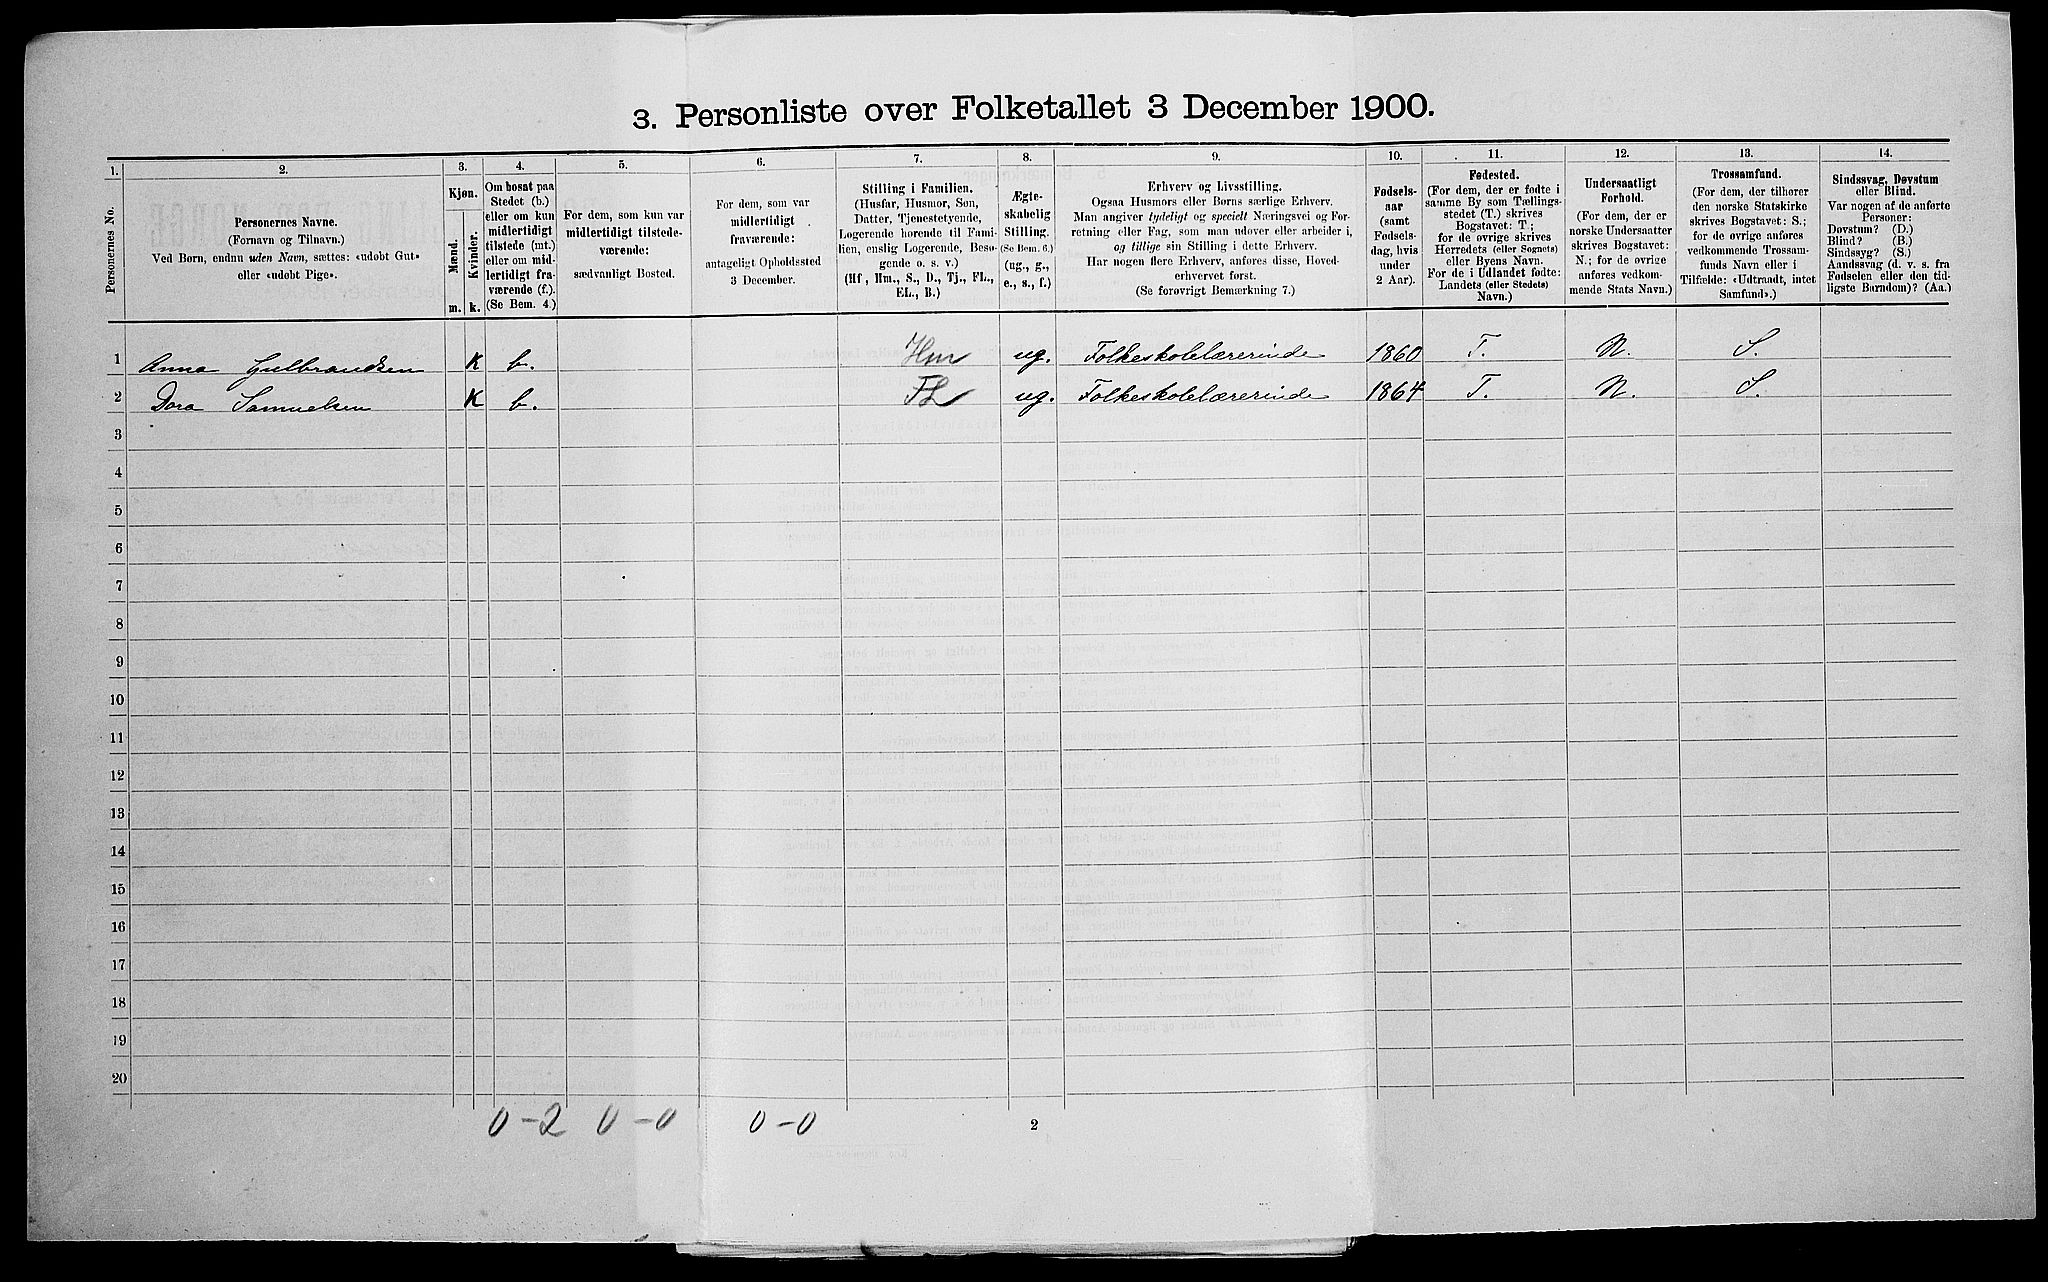 3. Personliste over Folketallet 3 December 1900.
1. 2. 3. 4. 5. 6. 7. 8. 9. 10. 11. 12. 13. 14.
Personernes No.
Personernes Navne.
(Fornavn og Tilnavn.)
Ved Børn, endnu uden Navn, sættes: «udøbt Gut»
eller «udøbt Pige».
Kjøn.
Mænd.
Kvinder.
m. k.
Om bosat paa
Stedet (b.)
eller om kun
midlertidigt
tilstede (mt.)
eller om mid-
lertidigt fra-
værende (f.).
(Se Bem. 4.)
For dem, som kun var
midlertidigt tilstede-
værende:
sædvanligt Bosted.
For dem, som var
midlertidigt
fraværende:
antageligt Opholdssted
3 December.
Stilling i Familien.
(Husfar, Husmor, Søn,
Datter, Tjenestetyende,
Logerende hørende til Fami-
lien, enslig Logerende, Besø-
gende o. s. v.)
(Hf, Hm., S., D., Tj., FL.,
EL., B.)
Ægte-
skabelig
Stilling.
(Se Bem. 6.)
(ug., g.,
e., s., f.)
Erhverv og Livsstilling.
Ogsaa Husmors eller Børns særlige Erhverv.
Man angiver tydeligt og specielt Næringsvei og For-
retning eller Fag, som man udøver eller arbeider i,
og tillige sin Stilling i dette Erhverv.
Har nogen flere Erhverv, anføres disse, Hoved-
erhvervet først.
(Se forøvrigt Bemærkning 7.)
Fødsels-
aar
(samt
Fødsels-
dag, hvis
under
2 Aar).
Fødested.
(For dem, der er fødte i
samme By som Tællings-
stedet (T.) skrives
Bogstavet: T.;
for de øvrige skrives
Herredets (eller Sognets)
eller Byens Navn.
For de i Udlandet fødte:
Landets (eller Stedets)
Navn.)
Undersaatligt
Forhold.
(For dem, der er
norske Undersaatter
skrives Bogstavet:
N.; for de øvrige
anføres vedkom-
mende Stats Navn.)
Trossamfund.
(For dem, der tilhører
den norske Statskirke
skrives Bogstavet: S.;
for de øvrige anføres
vedkommende Trossam-
funds Navn eller i
Tilfælde: «Udtraadt, intet
Samfund».)
Sindssvag, Døvstum
eller Blind.
Var nogen af de anførte
Personer:
Døvstum? (D.)
Blind? (B.)
Sindssyg? (S.)
Aandssvag (d. v. s. fra
Fødselen eller den tid-
ligste Barndom)? (Aa.)
1 Anna Gulbrandsen K b. Hm ug. Folkeskolelærerinde 1860 T. N. S.
2 Dora Samuelsen K b. FL ug. Folkeskolelærerinde 1864 T. N. S.
3
4
5
6
7
8
9
10
11
12
13
14
15
16
17
18
19
20
0-2 0-0 0-0 2